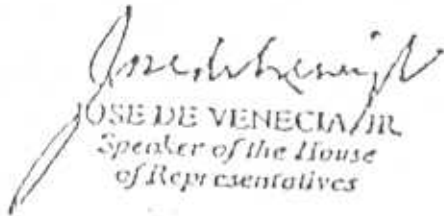 JOSE DE VENECIA, JR.
Speaker of the House
of Representatives